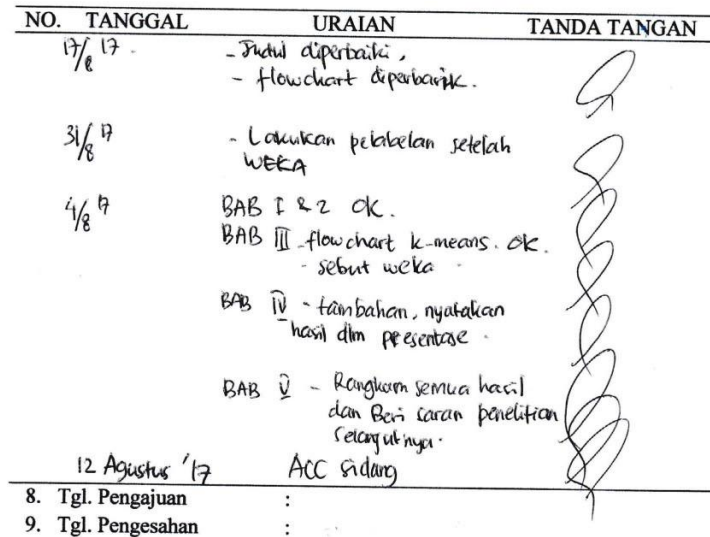 NO. TANGGAL URAIAN TANDA TANGAN
17/8 17 - Judul diperbaiki,
- flowchart diperbaiki.
31/8 17 - Lakukan pelabelan setelah
WEKA
4/8 17 BAB I & 2 OK.
BAB III - flowchart k-means. OK.
- sebut weka
BAB IV - tambahan, nyatakan
hasil dlm presentase.
BAB V - Rangkum semua hasil
dan Beri saran penelitian
selanjutnya.
12 Agustus '17 ACC Sidang
8. Tgl. Pengajuan :
9. Tgl. Pengesahan :